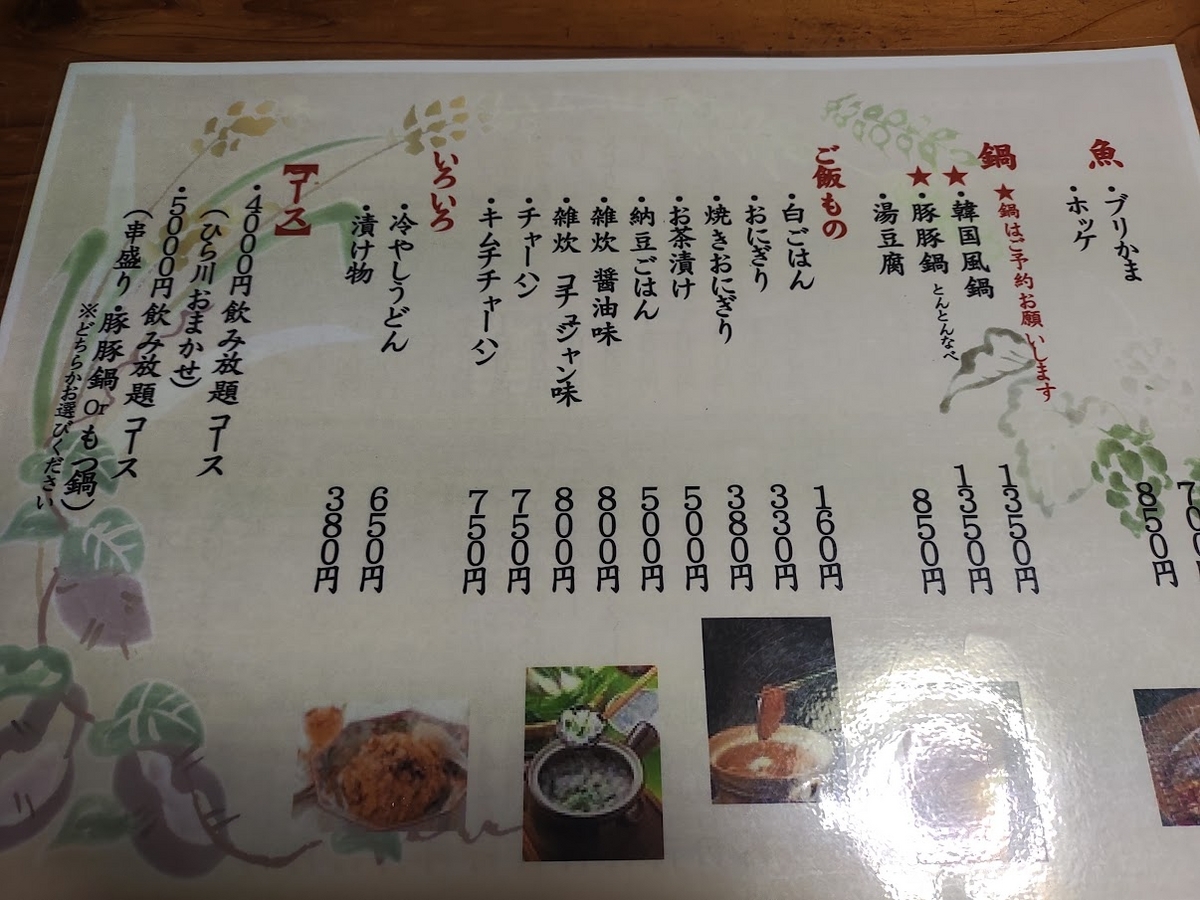 魚
・ブリかま 700円
・ホッケ 850円
鍋
★鍋はご予約お願いします
★・韓国風鍋 1350円
★・豚豚鍋 とんとんなべ 1350円
・湯豆腐 850円
ご飯もの
・白ごはん 160円
・おにぎり 330円
・焼きおにぎり 380円
・お茶漬け 500円
・納豆ごはん 500円
・雑炊 醤油味 800円
・雑炊 コチュジャン味 800円
・チャーハン 750円
・キムチチャーハン 750円
いろいろ
・冷やしうどん 650円
・漬け物 380円
【コース】
・4000円 飲み放題 コース
(ひら川おまかせ)
・5000円 飲み放題 コース
(串盛り・豚豚鍋 Or もつ鍋)
※どちらかお選びください